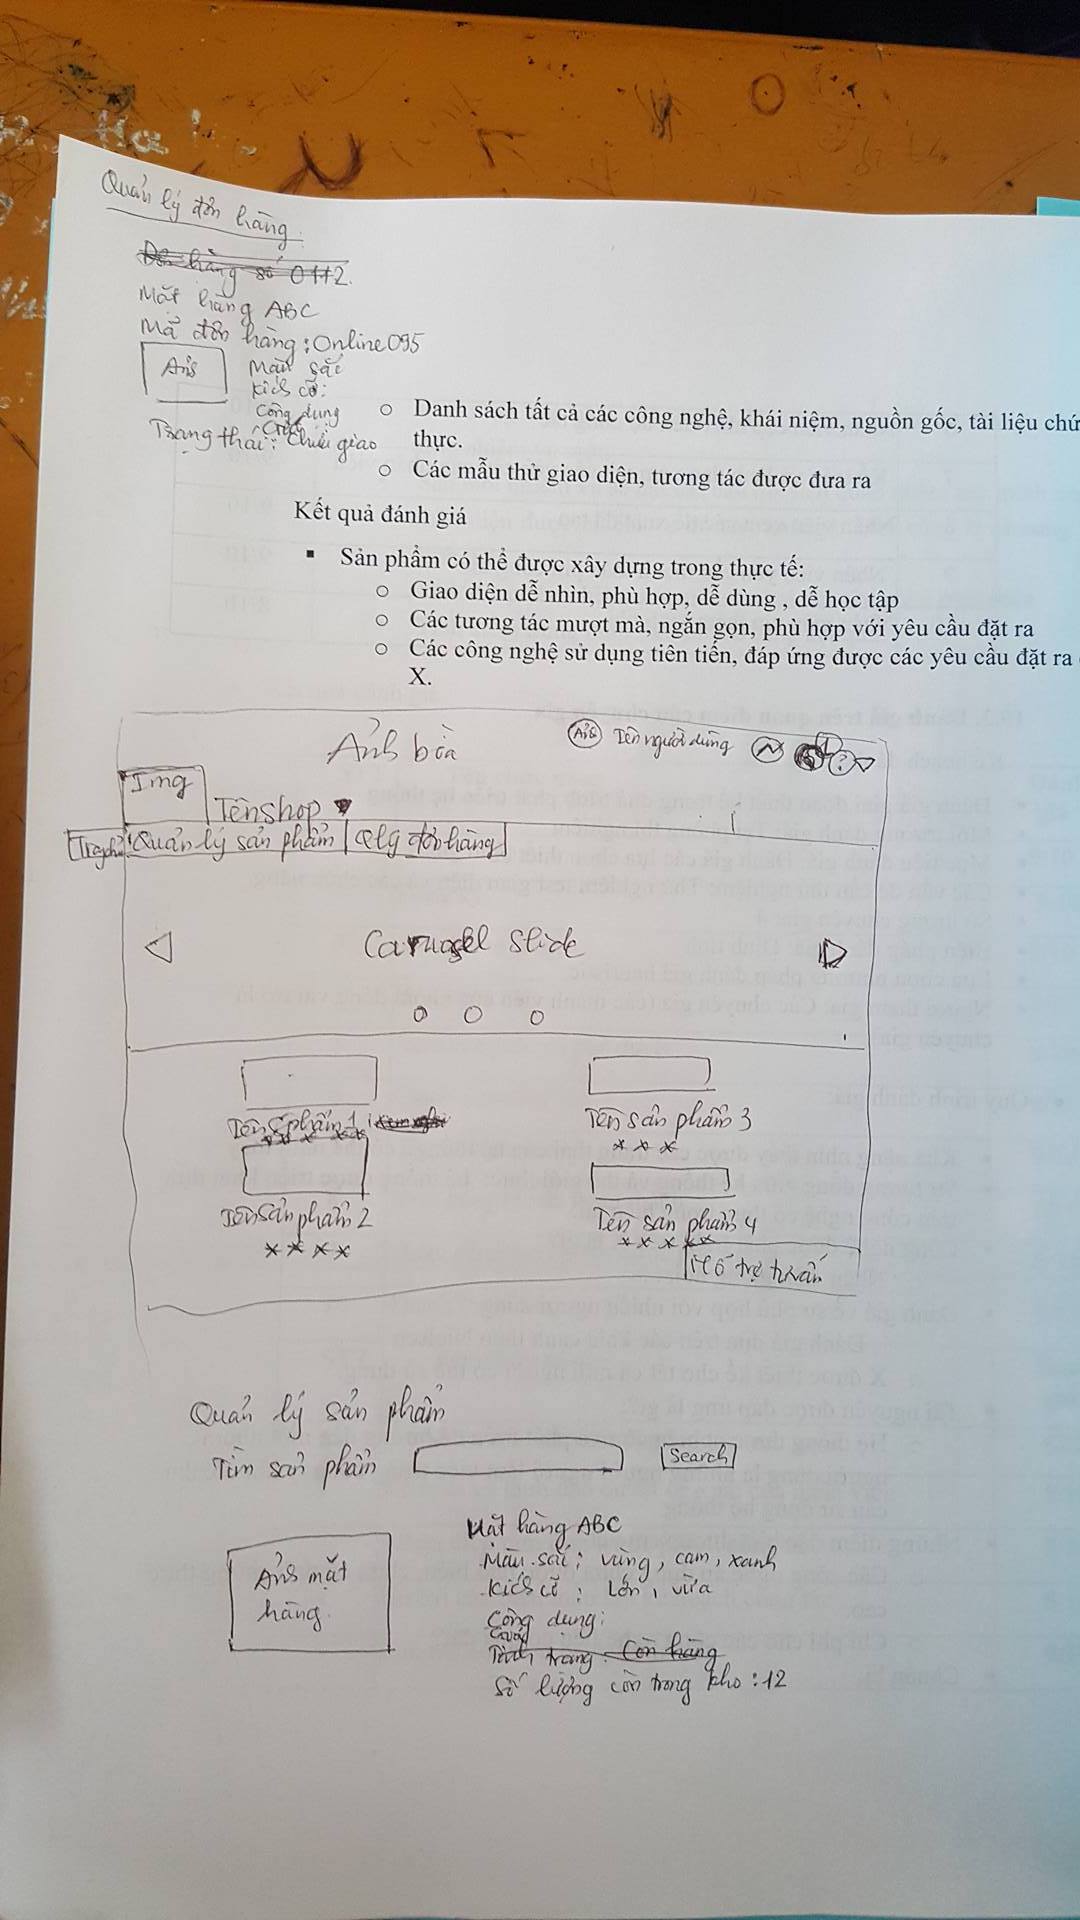 Quản lý đơn hàng
Mặt hàng ABC
Mã đơn hàng: Online 095
Ảnh
Màu sắc
Kích cỡ:
Công dụng
Trạng thái: Chưa giao
○ Danh sách tất cả các công nghệ, khái niệm, nguồn gốc, tài liệu chứ
thực.
○ Các mẫu thử giao diện, tương tác được đưa ra
Kết quả đánh giá
▪ Sản phẩm có thể được xây dựng trong thực tế:
○ Giao diện dễ nhìn, phù hợp, dễ dùng , dễ học tập
○ Các tương tác mượt mà, ngắn gọn, phù hợp với yêu cầu đặt ra
○ Các công nghệ sử dụng tiên tiến, đáp ứng được các yêu cầu đặt ra
X.
Ảnh bìa
Ảnh Tên người dùng ?
Img
Tên shop
Quản lý sản phẩm Qlý đơn hàng
Carousel slide
Tên sphẩm 1
Tên sản phẩm 3
Tên sản phẩm 2
Tên sản phẩm 4
Hỗ trợ tư vấn
Quản lý sản phẩm
Tìm sản phẩm Search
Ảnh mặt
hàng
Mặt hàng ABC
Màu sắc: vàng, cam, xanh
Kích cỡ: Lớn, vừa
Công dụng:
Tình trạng: Còn hàng
Số lượng còn trong kho: 12